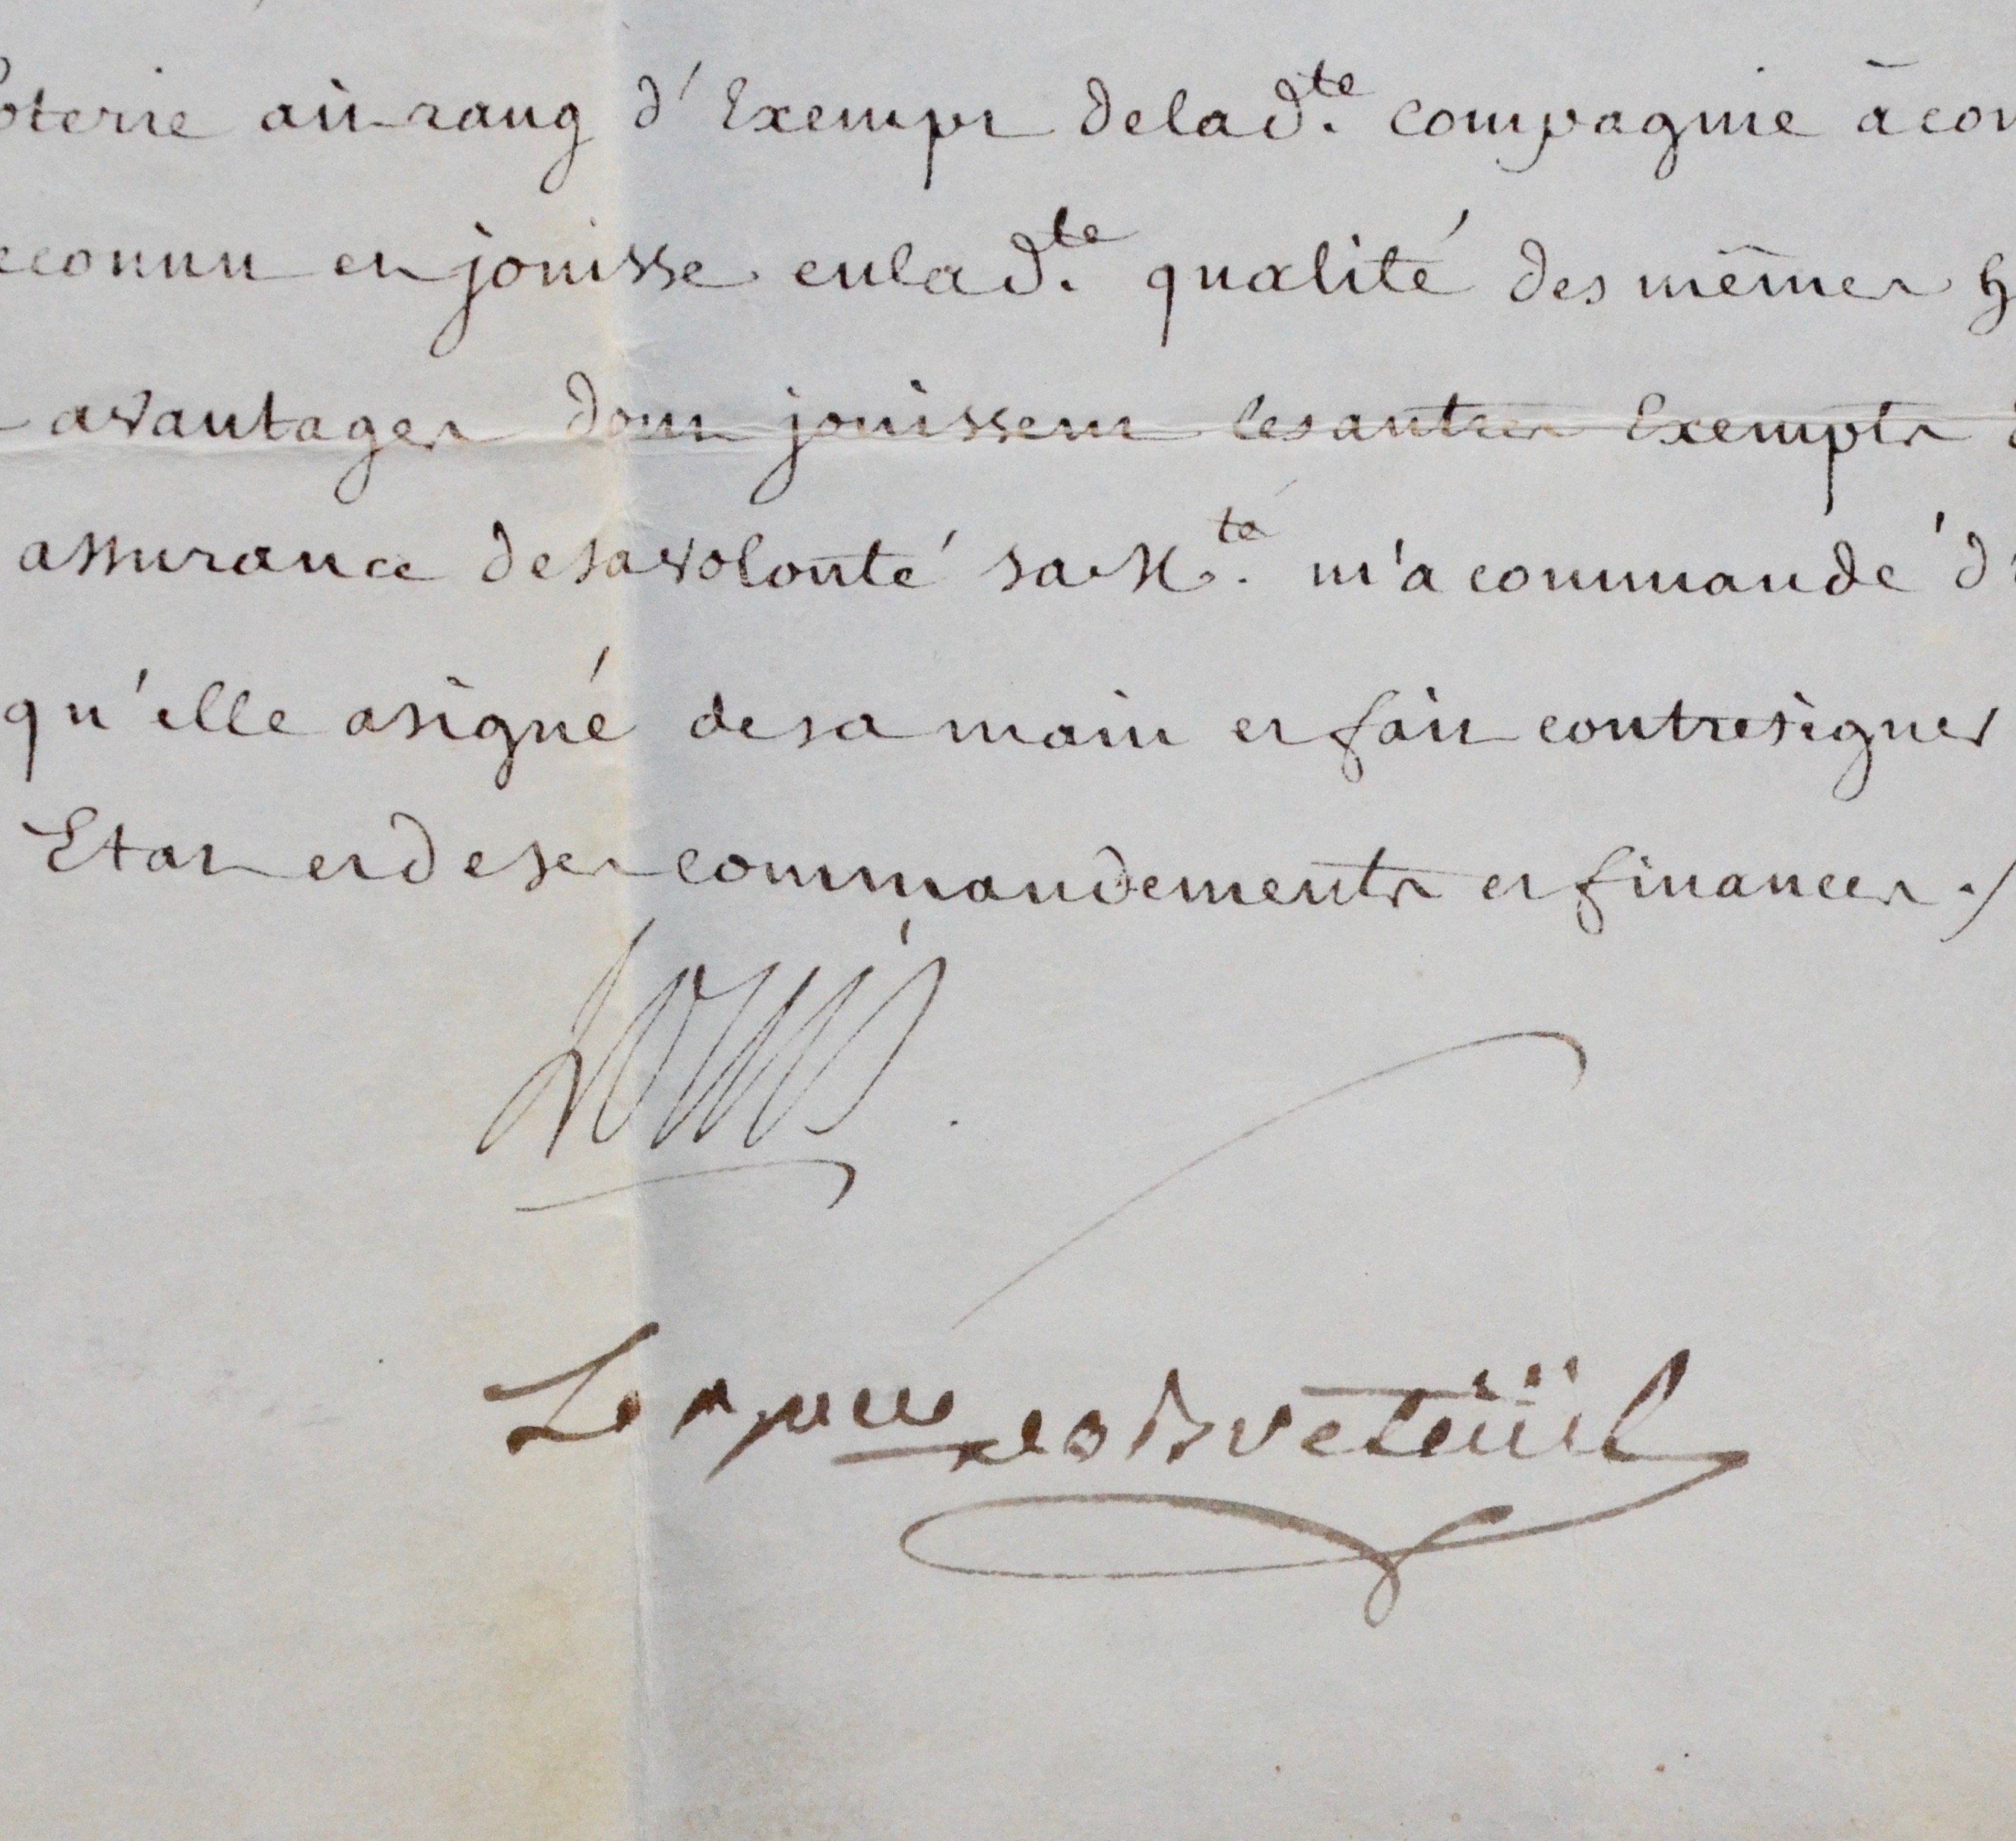 oterie au rang d'Exempt de lad.te compagnie à con
econnu et jouisse en lad.te qualité des mêmes h
avantages dont jouissent les autres Exempts d
assurance de sa volonté sa M.té m'a commandé d'
qu'elle a signé de sa main et fait contresigner
Etat et de ses commandements et finances ./
Louis
Le Bn de Breteüil